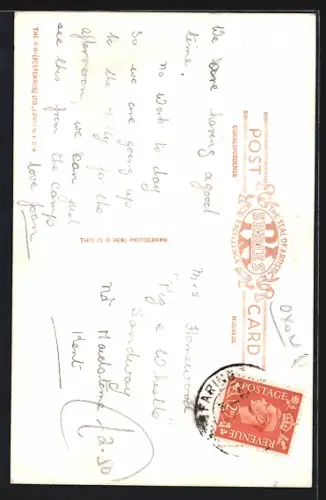 THE R.A.(POSTCARDS) LTD., LONDON, E.C.4
POST CARD
THE SEAL OF ARTISTIC EXCELLENCE
RA
SERIES
CORRESPONDENCE
ADDRESS
THIS IS A REAL PHOTOGRAPH
We are having a good
time.
no work to day
So we are going up
to the for the
afternoon, we can just
see this from the camp
love Joan
Mrs
"Pig & Whistle"
Sandway
Nr Maidstone
Kent
2.50
OXON
FARING
POSTAGE
REVENUE